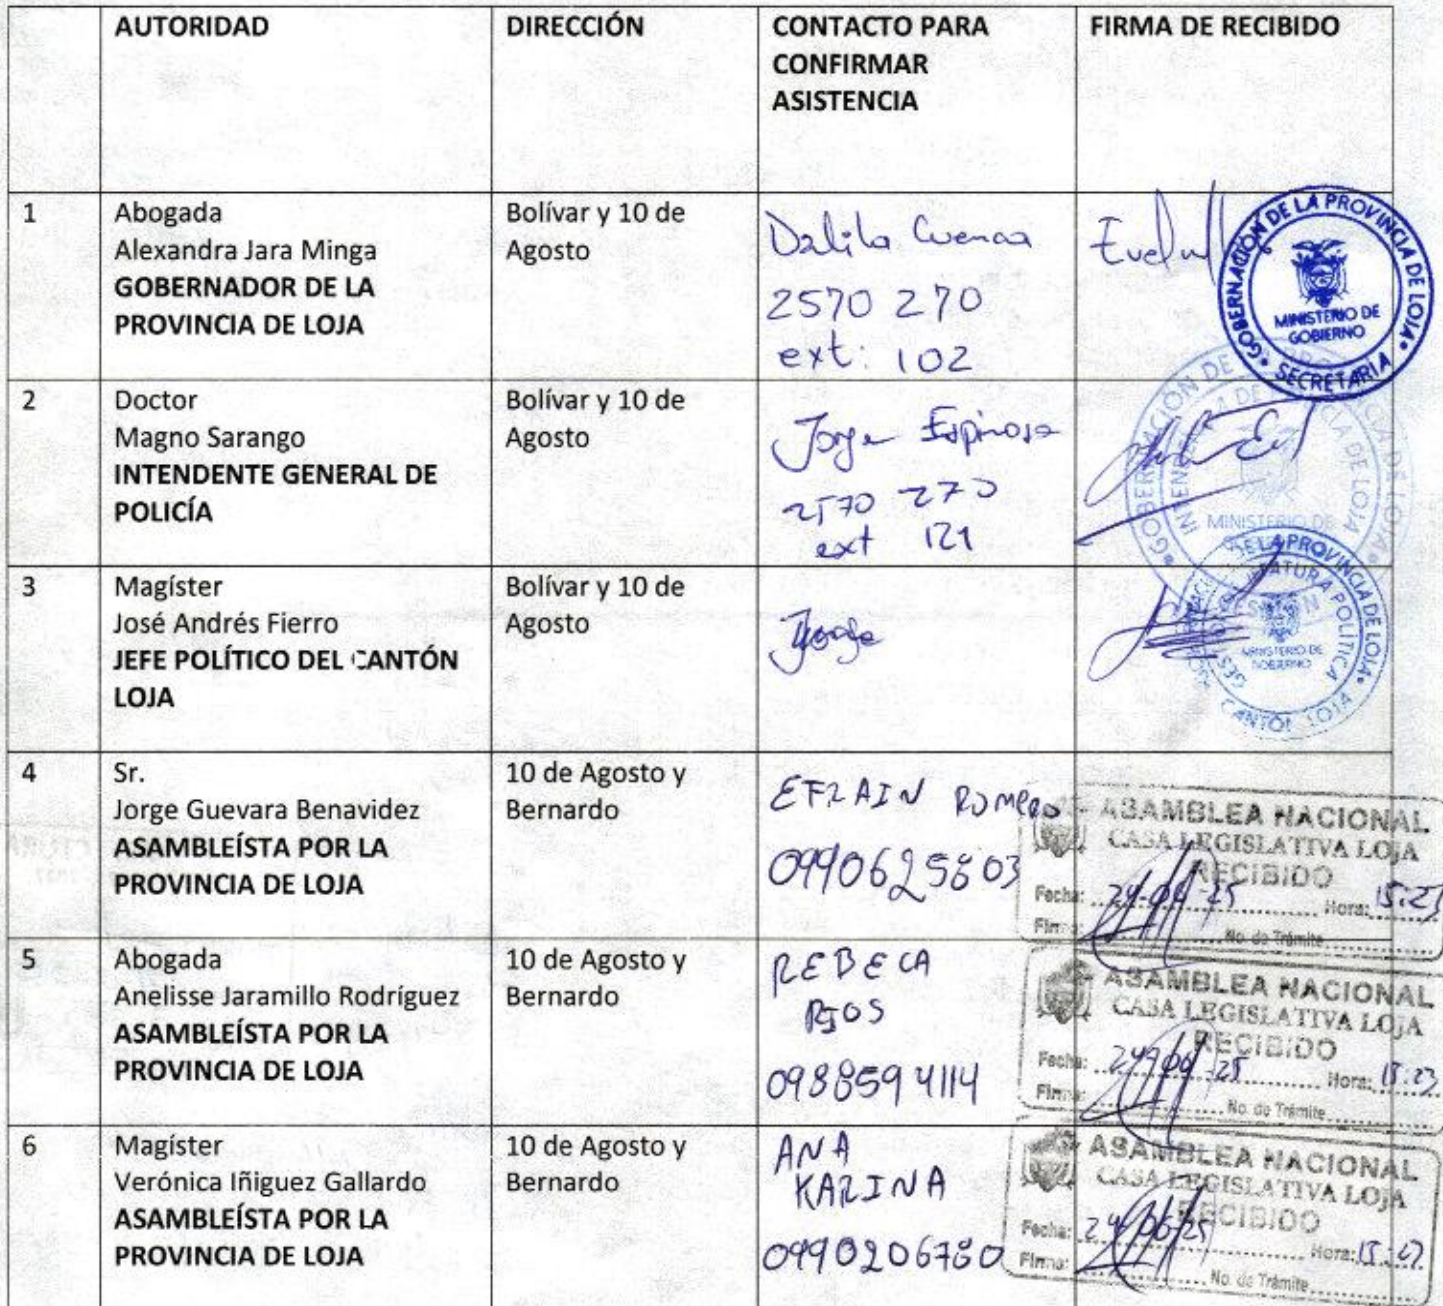 AUTORIDAD
DIRECCIÓN
CONTACTO PARA
CONFIRMAR
ASISTENCIA
FIRMA DE RECIBIDO
1
Abogada
Alexandra Jara Minga
GOBERNADOR DE LA
PROVINCIA DE LOJA
Bolívar y 10 de
Agosto
Dalila Cuenca
2570 270
ext: 102
GOBERNACIÓN DE LA PROVINCIA DE LOJA
MINISTERIO DE
GOBIERNO
SECRETARIA
2
Doctor
Magno Sarango
INTENDENTE GENERAL DE
POLICÍA
Bolívar y 10 de
Agosto
Jorge Espinosa
2570 270
ext 121
GOBERNACIÓN DE
MINISTERIO DE
3
Magíster
José Andrés Fierro
JEFE POLÍTICO DEL CANTÓN
LOJA
Bolívar y 10 de
Agosto
DE LA PROVINCIA DE LOJA
JEFATURA POLITICA
MINISTERIO DE
GOBIERNO
CANTÓN LOJA
4
Sr.
Jorge Guevara Benavidez
ASAMBLEÍSTA POR LA
PROVINCIA DE LOJA
10 de Agosto y
Bernardo
EFRAIN ROMERO
0990625803
ASAMBLEA NACIONAL
CASA LEGISLATIVA LOJA
RECIBIDO
Fecha: 24-06-25 Hora: 15:23
Firma: No. de Trámite
5
Abogada
Anelisse Jaramillo Rodríguez
ASAMBLEÍSTA POR LA
PROVINCIA DE LOJA
10 de Agosto y
Bernardo
REBECA
RIOS
0988594114
ASAMBLEA NACIONAL
CASA LEGISLATIVA LOJA
RECIBIDO
Fecha: 24-06-25 Hora: 15:23
Firma: No. de Trámite
6
Magíster
Verónica Iñiguez Gallardo
ASAMBLEÍSTA POR LA
PROVINCIA DE LOJA
10 de Agosto y
Bernardo
ANA
KARINA
0990206780
ASAMBLEA NACIONAL
CASA LEGISLATIVA LOJA
RECIBIDO
Fecha: 24-06-25 Hora: 15:23
Firma: No. de Trámite